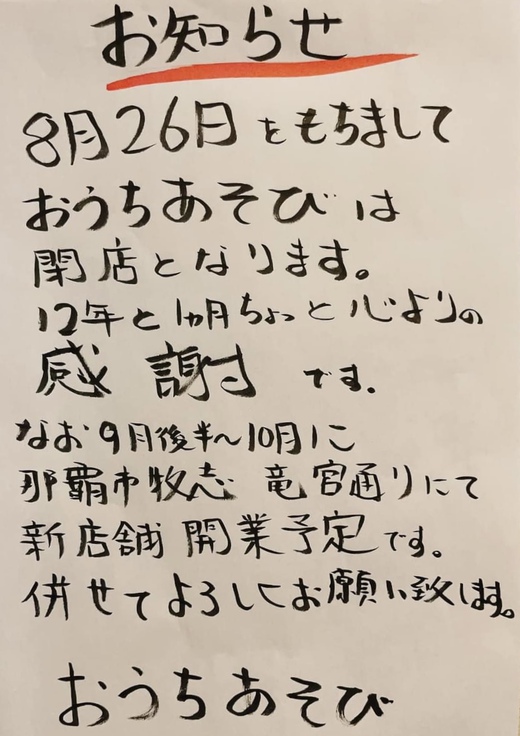 お知らせ
8月26日をもちまして
おうちあそびは
閉店となります。
12年と1ヵ月ちょっと心よりの
感謝です.
なお9月後半〜10月に
那覇市牧志 竜宮通りにて
新店舗 開業予定です。
併せてよろしくお願い致します。
おうちあそび